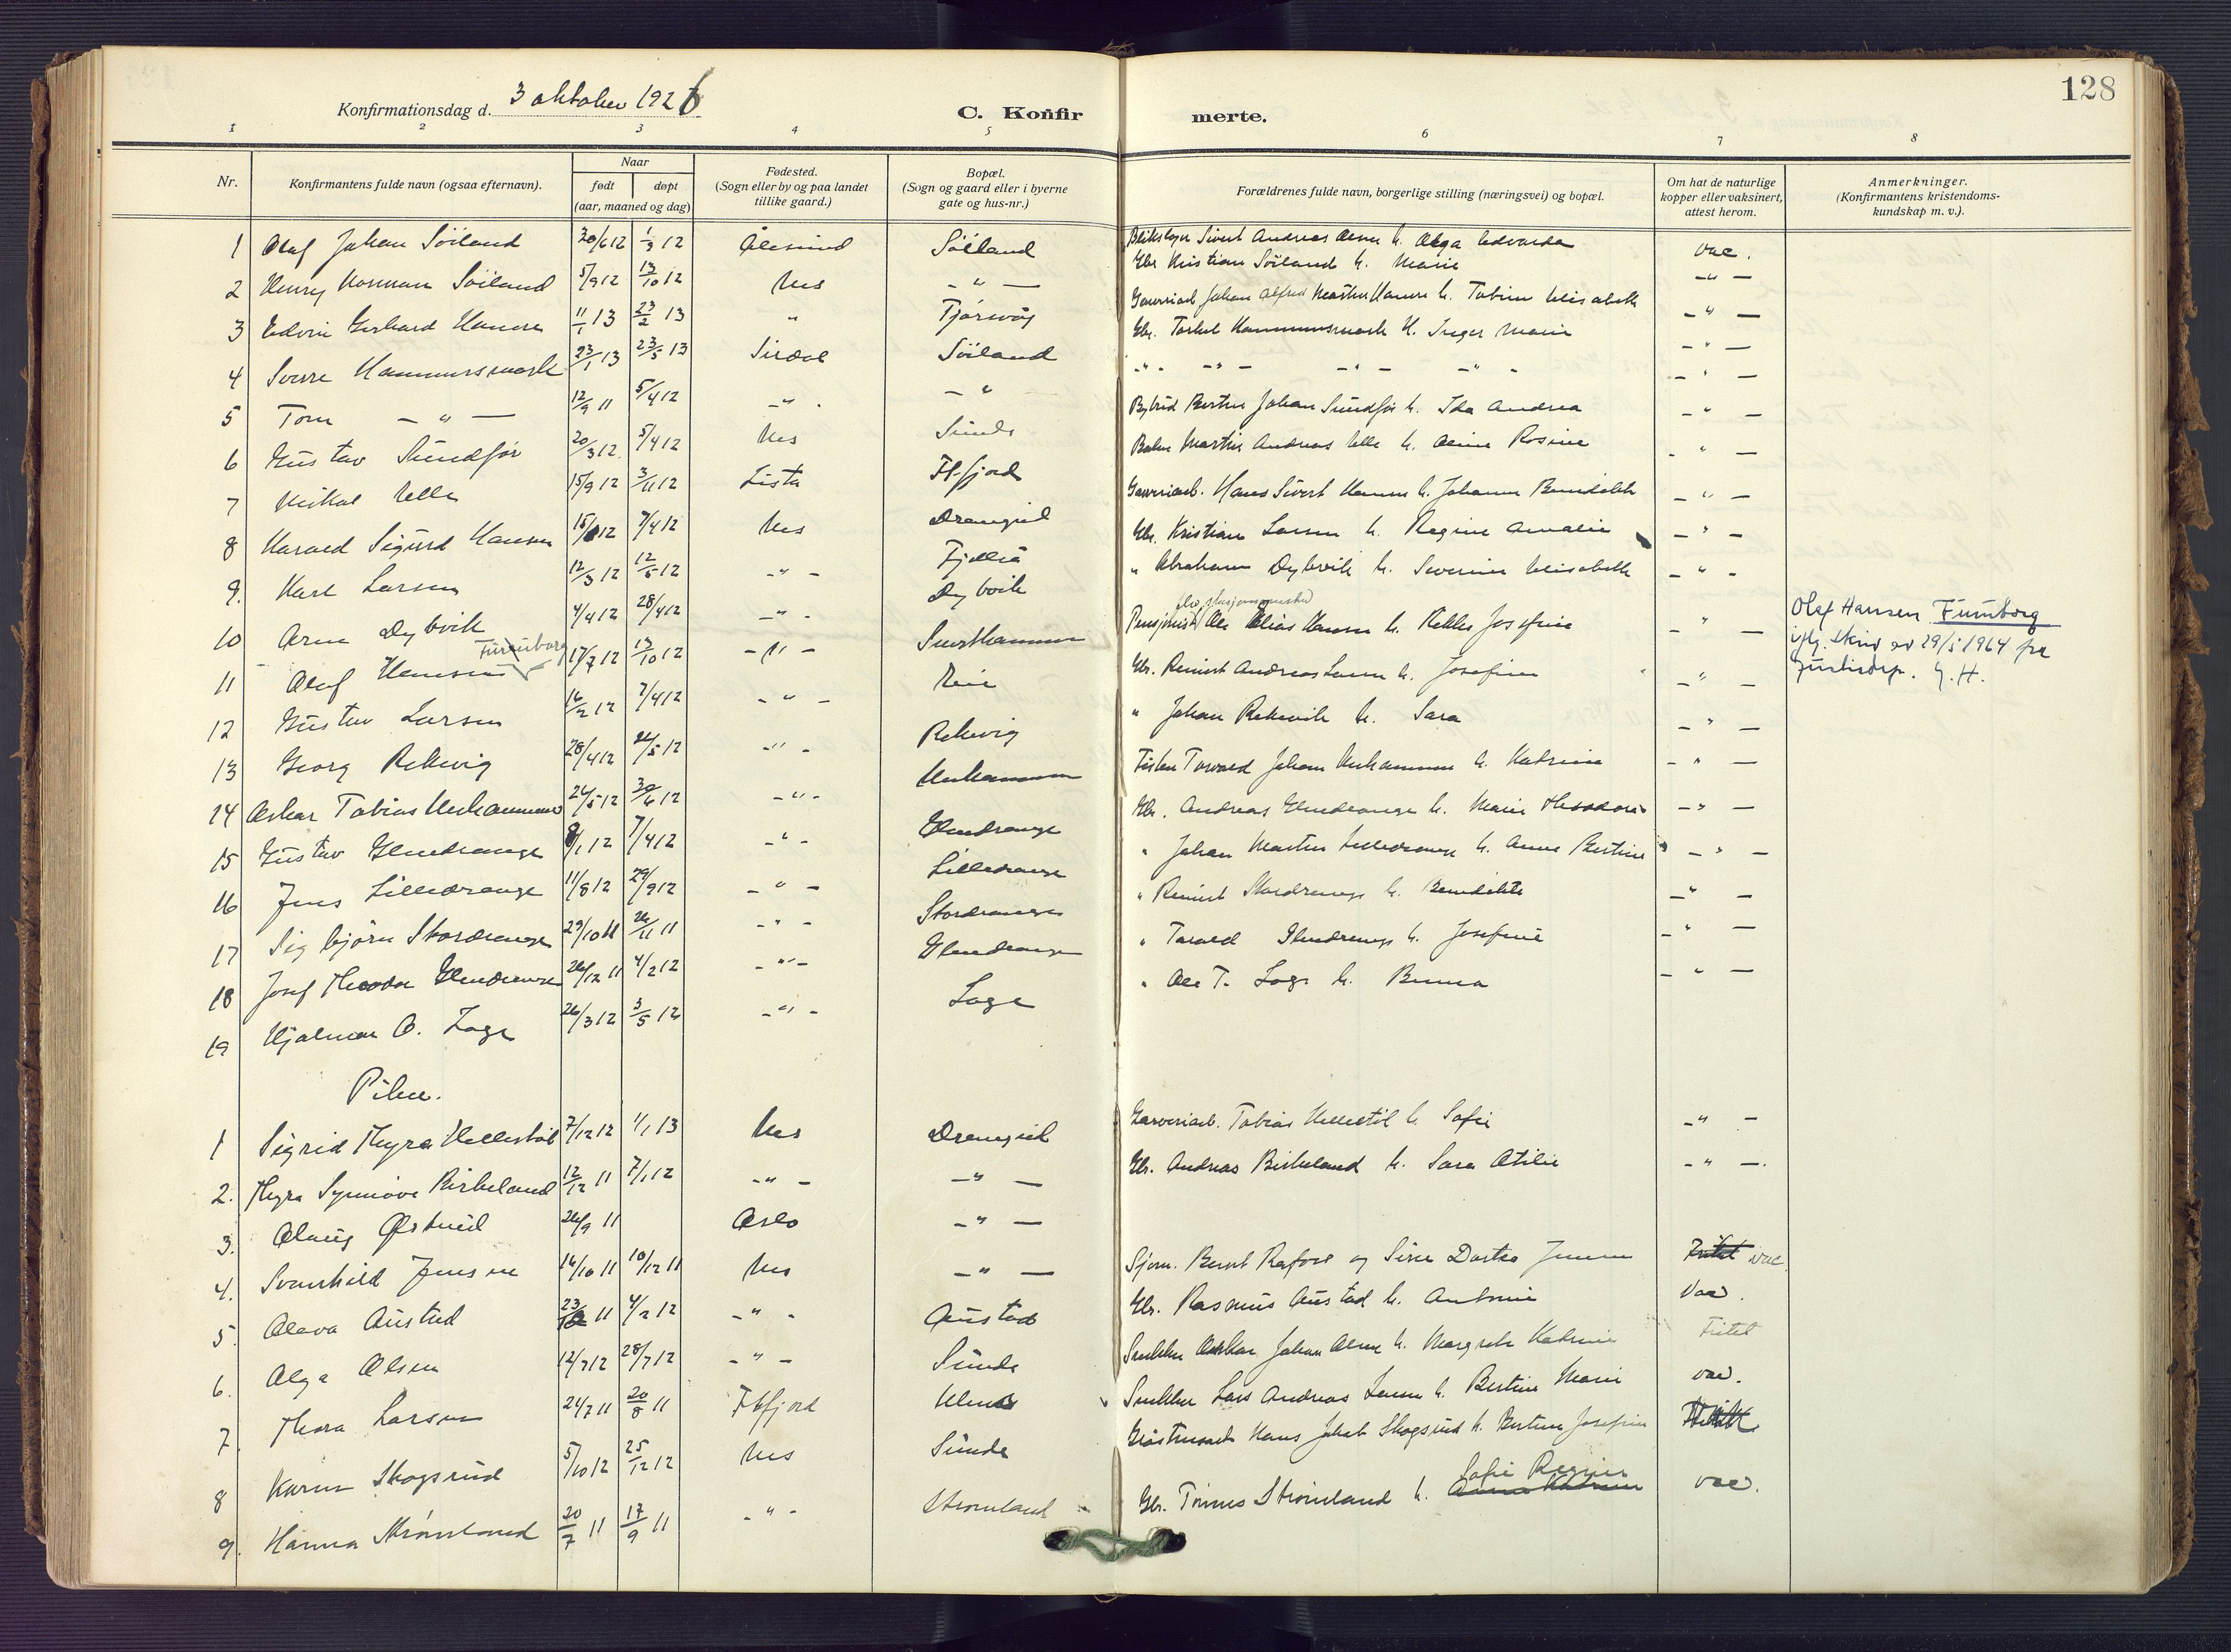 128
Konfirmationsdag d. 3 oktober 1926
C. Konfirmerte.
1 2 3 4 5 6 7 8
Nr.
Konfirmantens fulde navn (ogsaa efternavn).
Naar
født døpt
(aar, maaned og dag)
Fødested.
(Sogn eller by og paa landet
tillike gaard.)
Bopæl.
(Sogn og gaard eller i byerne
gate og hus-nr.)
Forældrenes fulde navn, borgerlige stilling (næringsvei) og bopæl.
Om hat de naturlige
kopper eller vaksinert,
attest herom.
Anmerkninger.
(Konfirmantens kristendoms-
kundskap m. v.).
1 Olaf Johan Söiland 12 1/3 12 Ålesund Söiland Sivert Andreas h. Olga vac.
2 Henry Norman Söiland 5/9 12 13/10 12 Nes - " - Gbr. Kristian Söiland h. Marie - " -
3 Edvin Gerhard Hansen 11/1 13 23/2 13 " Fjörsvåg Johan Alfred Martin Hansen h. Tobine Elisabeth - " -
4 Sverre Hammersmark 23/1 13 23/5 13 Sirdal Söiland Gbr. Torkel Hammersmark h. Inger Marie - " -
5 Tom - " - 12/9 11 5/4 12 - " - - " " - - " - - " - - " - - " -
6 Gustav Sundför 20/3 12 5/4 12 Nes Sunde Johan Sundför h. Ida Andrea - " -
7 15/9 12 3/11 12 Lista Fl-fjord Martin Andreas h. Rosine - " -
8 Harald Sigurd Hansen 12 7/4 12 Nes Drangeid Garveriarb. Hans Sivert Hansen h. Johanne Bendikte - " -
9. Karl Larsen 12/3 12 12/5 12 - " - Fjellså Gbr. Kristian Larsen h. Regine Amalie - " -
10 Arne Dybvik 4/4 12 28/4 12 - " - Dybvik " Abraham Dybvik h. Severine Elisabeth - " -
11 Olaf Hansen Furuborg 17/7 12 13/10 12 - " - Pensjonist Ole Elias Hansen h. Josefine - " -
Olaf Hansen Furuborg
29/5 1964 fra
12 Gustav Larsen 16/2 12 7/4 12 - " - Gbr. Reinert Andreas Larsen h. Josefine - " -
13 Georg Rekevig 28/4 12 26/5 12 - " - Rekevig " Johan Rekevik h. Sara - " -
14 Oskar Tobias 24/5 12 30/6 12 - " - Fisker Torvald Johan h. Katrine - " -
15 Gustav Glendrange 8/1 12 7/4 12 - " - Glendrange Gbr. Andreas Glendrange h. Marie Theodora - " -
16 Jens Lilledrange 11/8 12 29/9 12 - " - Lilledrange " Johan Martin Lilledrange h. Anne Bertine - " -
17 Sigbjörn Stordrange 29/10 11 26/11 11 - " - Stordrange " Reinert Stordrange h. Bendikte - " -
18 Josef Theodor Glendrange 26/12 11 4/2 12 - " - Glendrange " Torvald Glendrange h. Josefine - " -
19 Hjalmar O. Loge 26/3 12 3/5 12 - " - Loge " Ole T. Loge h. Berna - " -
Piker.
1 Sigrid Thyra Hellestöl 7/12 12 1/1 13 Nes Drangeid Garveriarb. Tobias Hellestöl h. Sofie - " -
2. Thyra Synnöve Birkeland 12/12 11 7/1 12 - " - - " - Gbr. Andreas Birkeland h. Sara Otilie - " -.
3. Olaug 26/9 11 Oslo - " -
4. Svanhild Jensen 16/10 11 10/12 11 Nes - " - Sjøm. Bernt Rafoss og Sine Dortea Jensen Fritat vac.
5 Oleva Austad 11 4/2 12 - " - Austad Gbr. Rasmus Austad h. Antonie Vac.
6. Olga Olsen 12/7 12 28/7 12 - " - Sunde Snekker Oskar Johan Olsen h. Margrete Katrine Fritat
7. Thora Larsen 24/7 11 20/8 11 Flfjord Snekker Lars Andreas Larsen h. Bertine Marie vac.
8 Karen Skogsrud 5/10 12 25/12 12 Nes Sunde Hans Jakob Skogsrud h. Bertine Josefine
9. Hanna Strömland 20/7 11 17/9 11 - " - Strömland Gbr. Tönnes Strömland h. Sofie Regine vac.